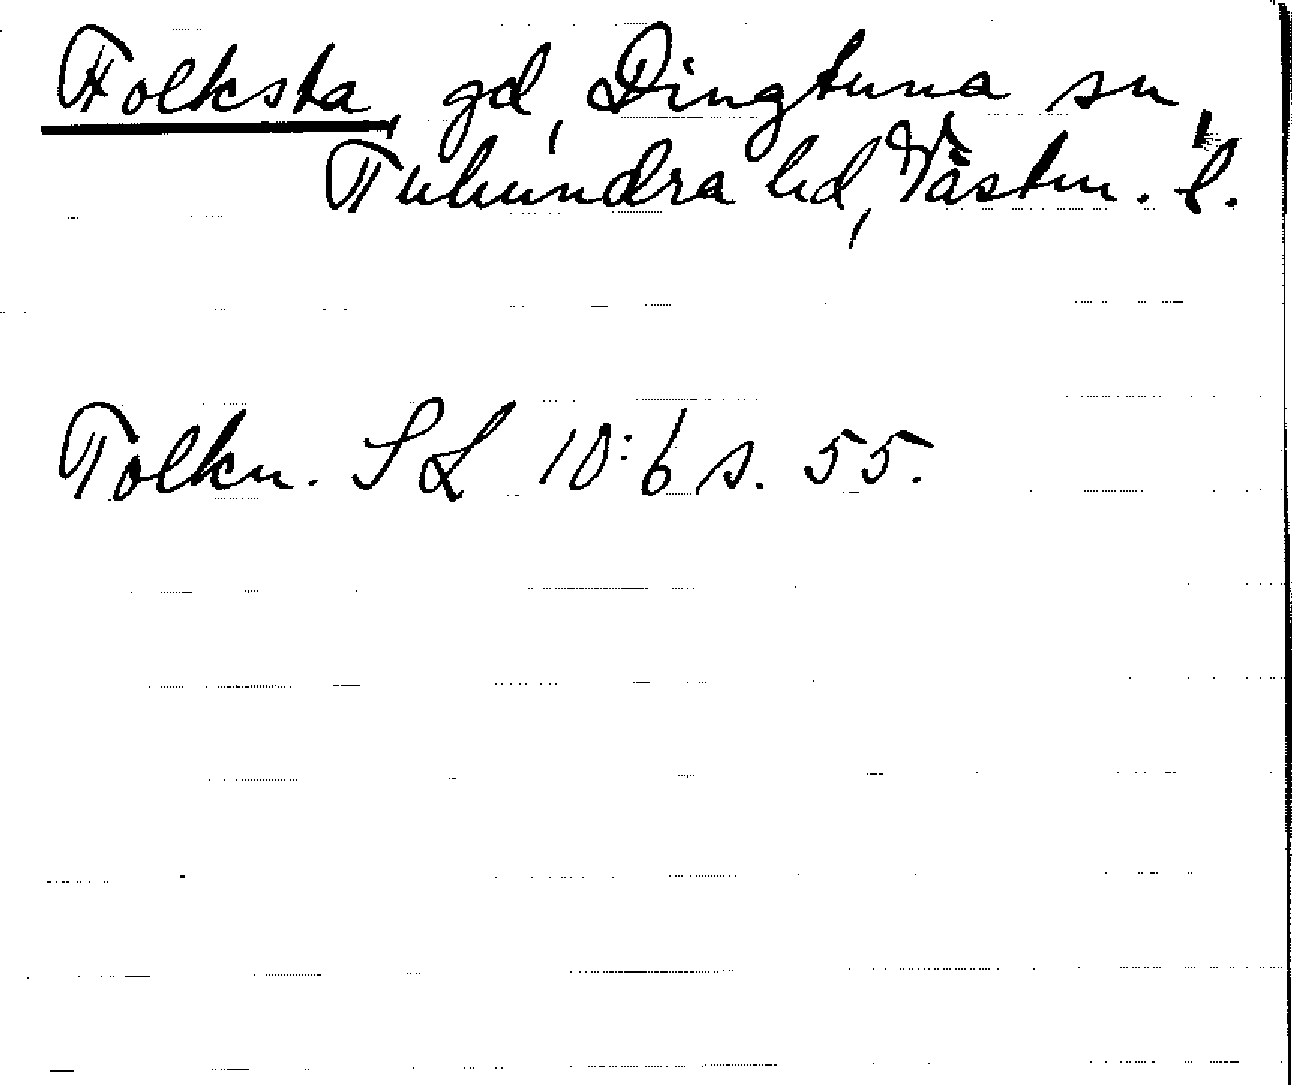 Folksta gd, Dingtuna sn,
Tuhundra hd, Västm. l.
Tolkn. SL 10:6 s. 55.